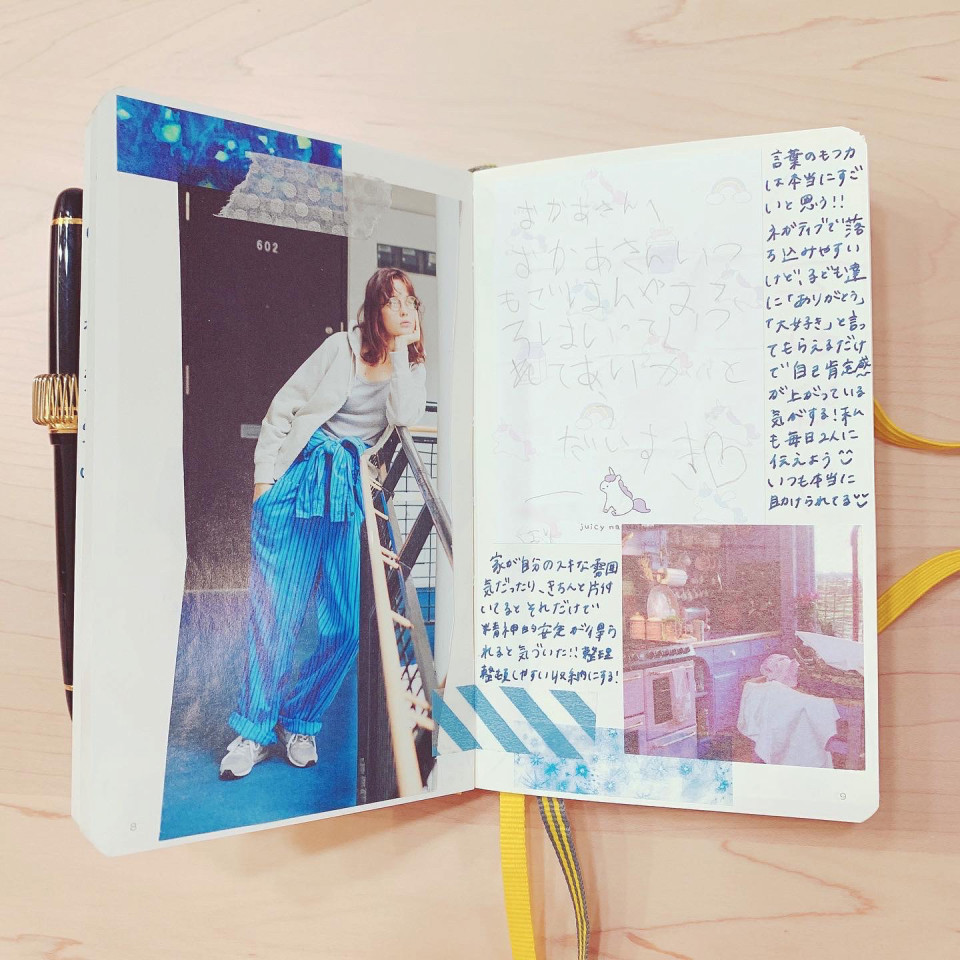 602
おかあさんへ
おかあさんいつ
もごはんやようふ
だいすき
juicy
言葉のもつ力
は本当にすご
いと思う!!
ネガティブで落
ち込みやすい
けど、子ども達
に「ありがとう」
「大好き」と言っ
てもらえるだけ
で自己肯定感
が上がっている
気がする!私
も毎日2人に
伝えよう
いつも本当に
助けられてる
家が自分のスキな雰囲
気だったり、きちんと片付
いてるとそれだけで
精神的安定が得ら
れると気づいた!!整理
整頓しやすい収納にする!
8
9